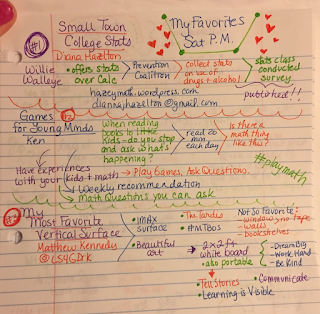 Small Town
College Stats
My Favorites
Sat P.M.
#1
Diana Hazelton
Willie
Walleye
• offers stats
over Calc
Prevention
Coalition
collect stats
on use of
drugs + alcohol
stats class
conducted
survey
published!!
hazeymath.wordpress.com
diannajhazelton@gmail.com
Games
for Young Minds
Ken
#2
When reading
books to little
kids - do you stop
and ask what's
happening?
read 20
min
each day
Is there a
math thing
like this?
#playmath
Have experiences
with your kids + math
→ Play Games, Ask Questions.
Weekly recommendation
Math Questions you can ask
My
Most Favorite
Vertical Surface
Matthew Kennedy
• IMAX
surface
• Beautiful
cart
• The Tardis
• #MTBoS
Not so favorite:
- window, no tape
- walls
- bookshelves
• 2x2ft
white board
• also portable
- Dream Big
- Work Hard
- Be Kind
• Tell Stories
• Communicate
• Learning is Visible